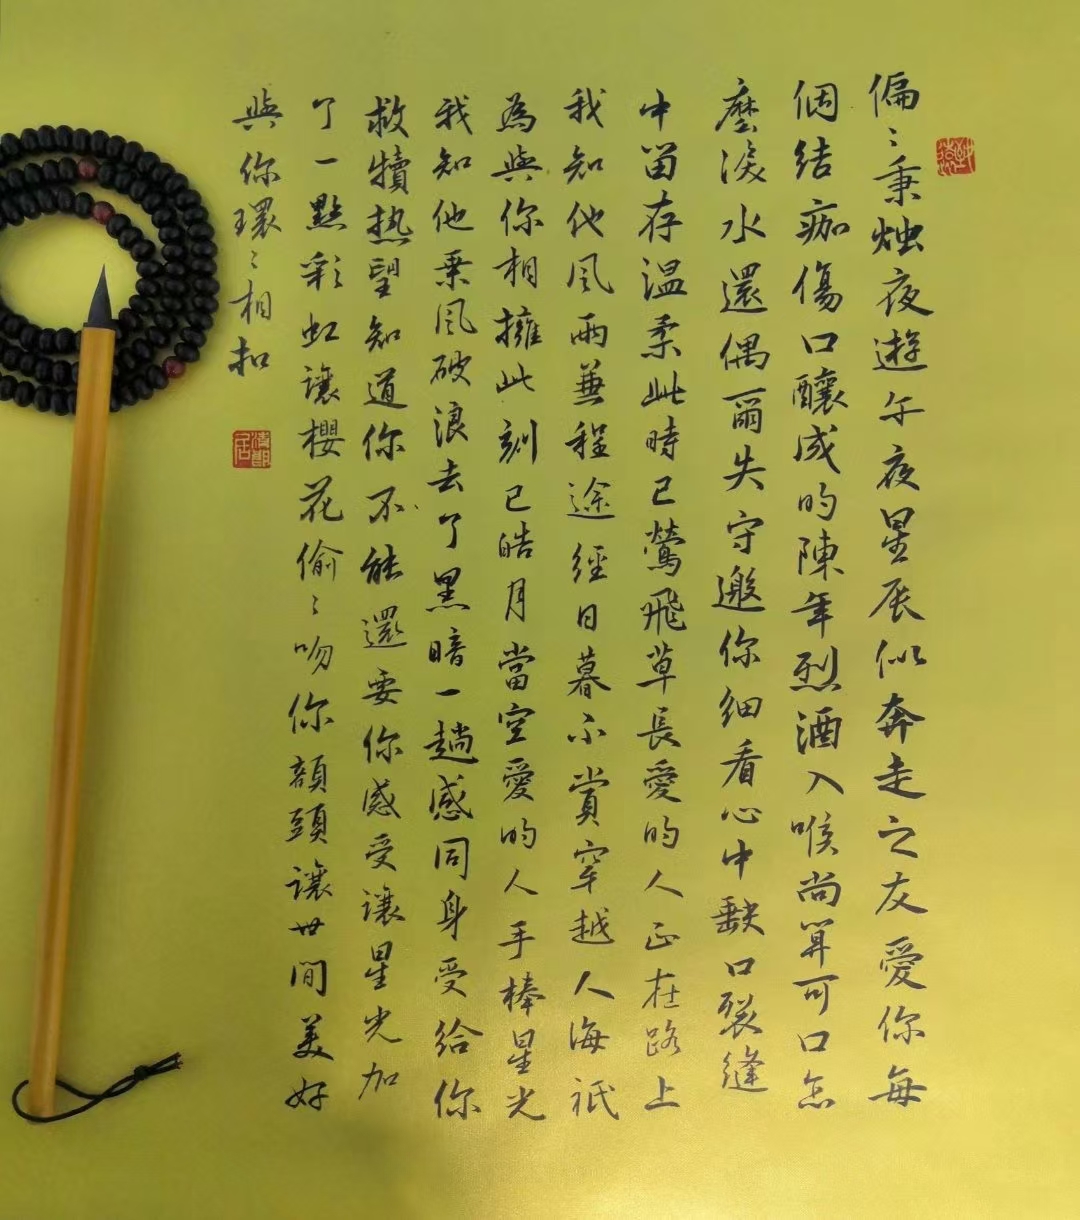 偏〻秉烛夜遊午夜星辰似奔走之友愛你每
個結痂傷口釀成的陳年烈酒入喉尚算可口怎
麼淚水還偶爾失守邀你細看心中缺口裂縫
中留存温柔此時已鶯飛草長愛的人正在路上
我知他風雨兼程途經日暮不賞穿越人海祇
為與你相擁此刻已皓月當空愛的人手棒星光
我知他乘風破浪去了黑暗一趟感同身受給你
救犢热望知道你不能還要你感受讓星光加
了一點彩虹讓櫻花偷〻吻你額頭讓世間美好
與你環〻相扣